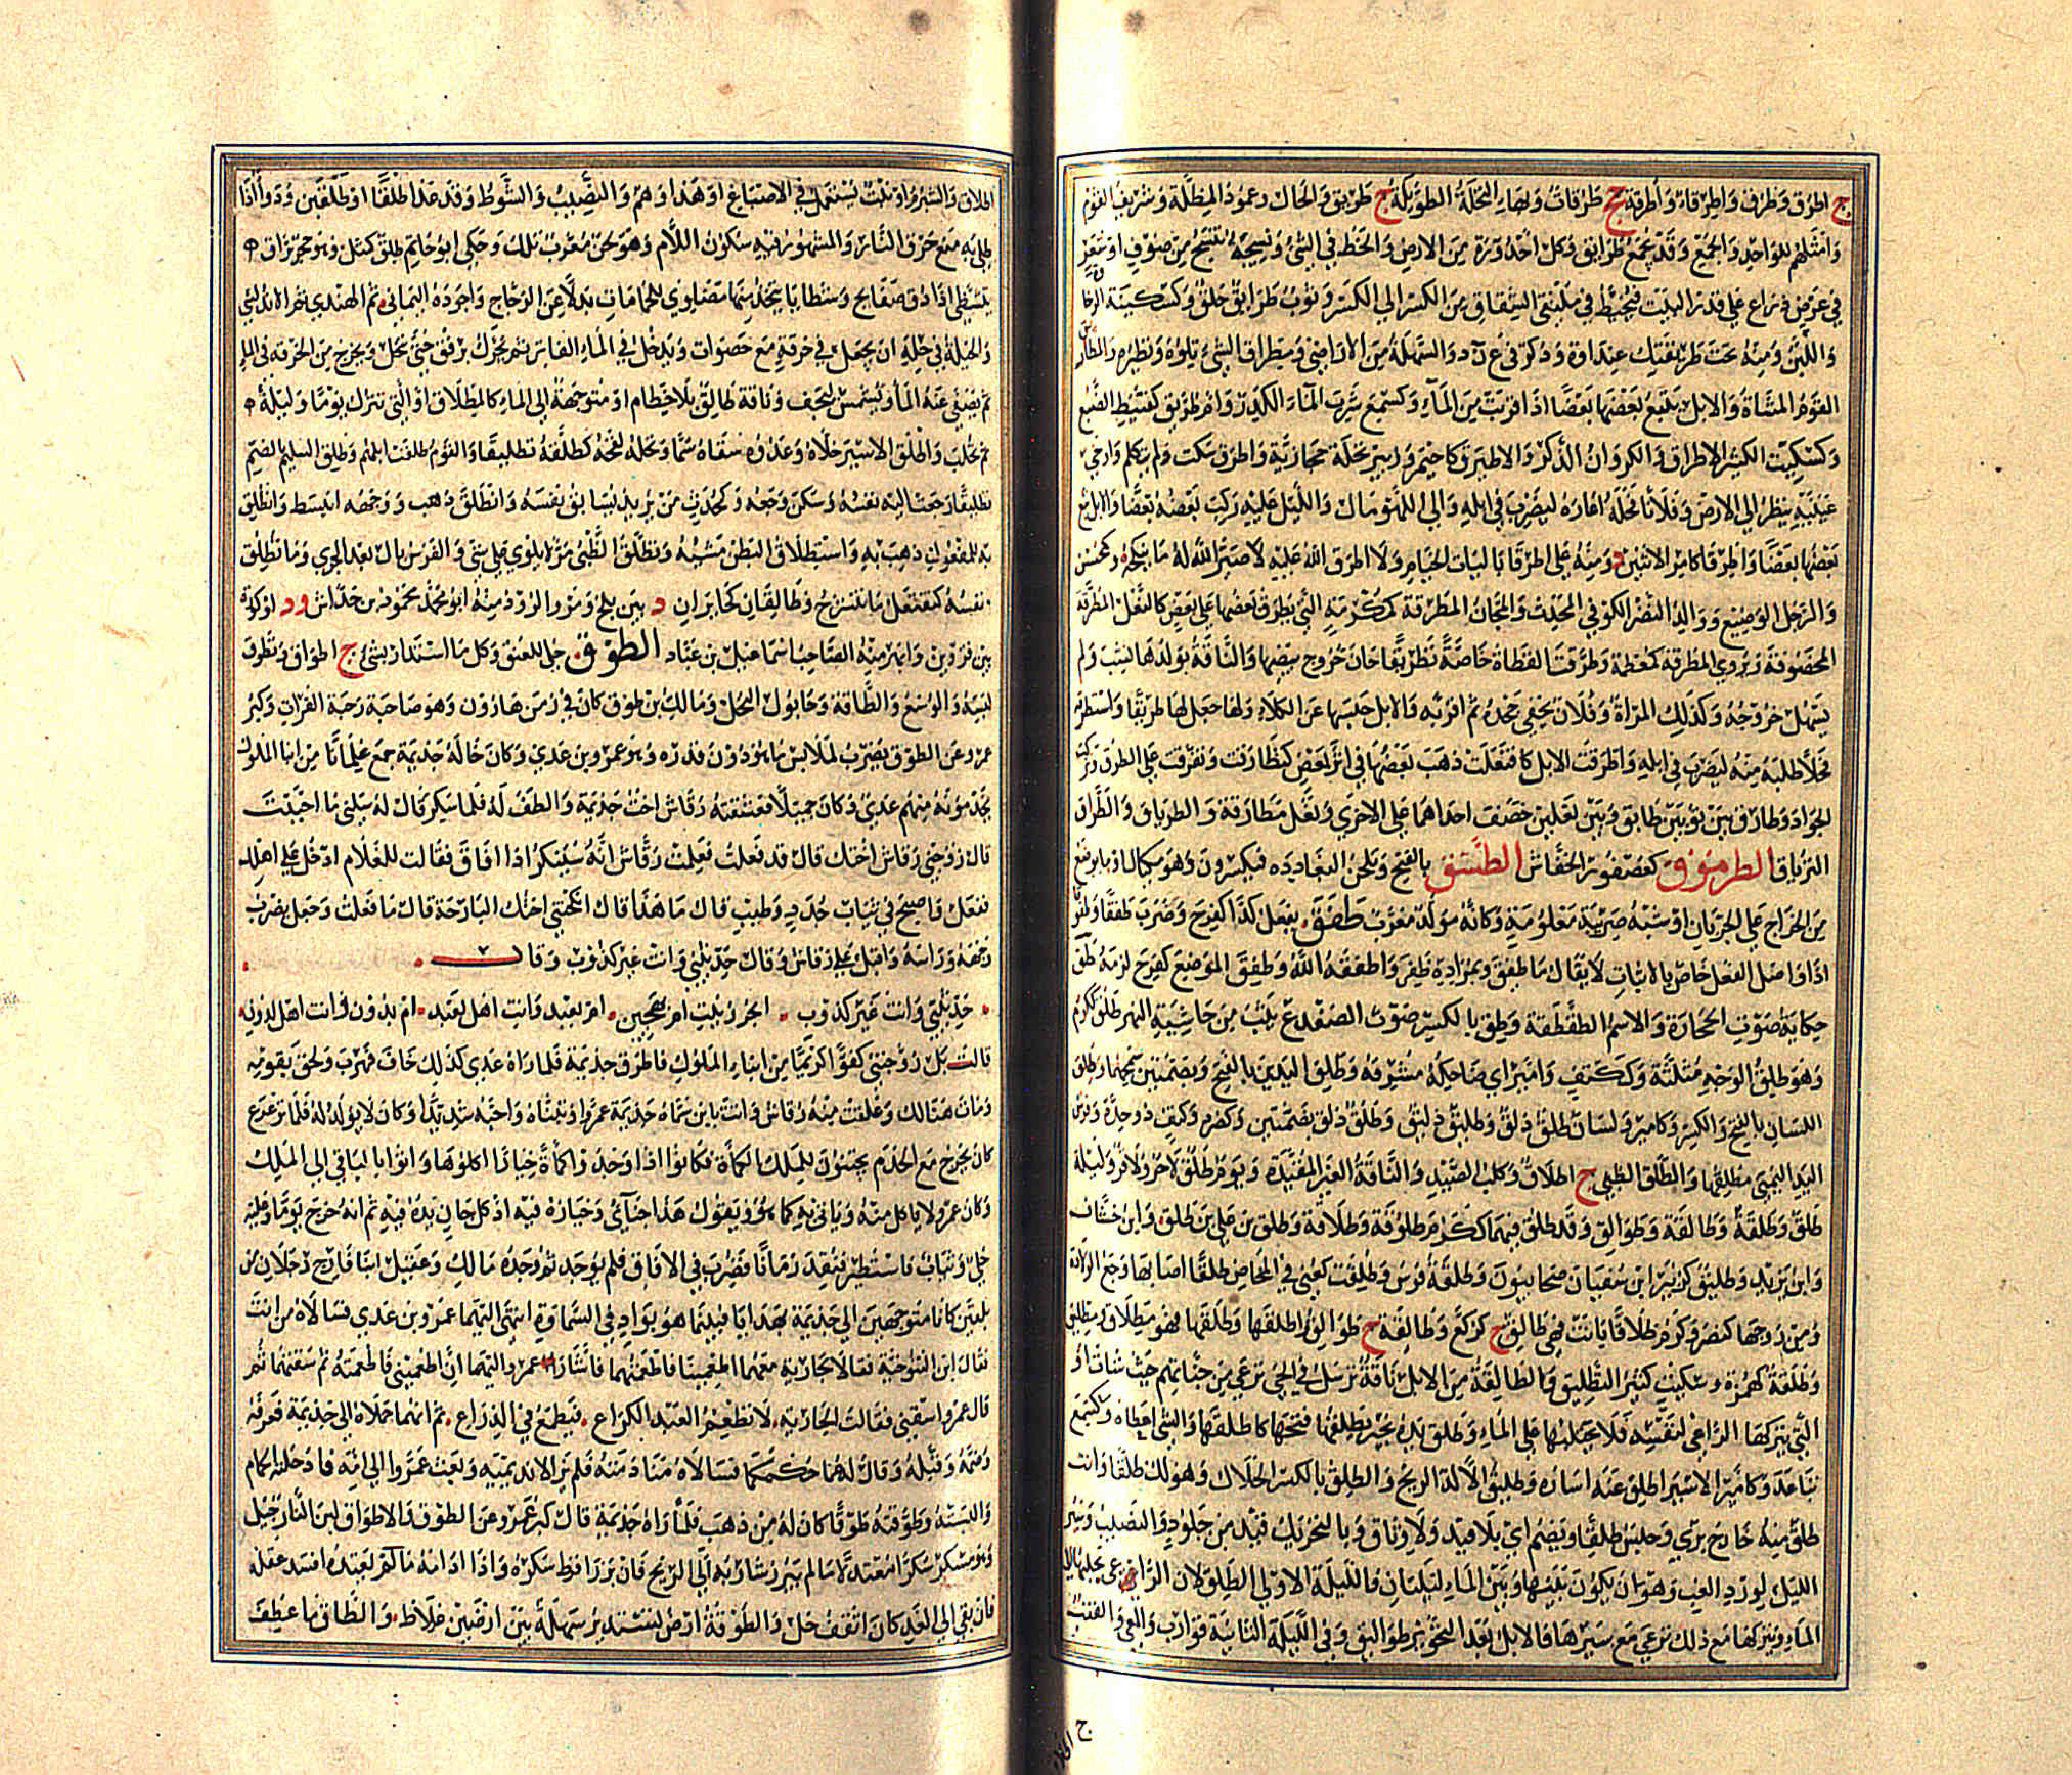 ج اطرق وطرق واطرقاء واطرقة جج طرقات وبهاء النخلة الطويلة ج طريق والحال وعمود المظلة وشريف القوم
وامثلهم للواحد والجمع وقد يجمع طرائق وكل احدورة من الارض والخط في الشئ ونسيجة تنسج من صوف او شعر
في عرض ذراع على قدر البيت فتخيط في ملتقى الشقاق من الكسر الى الكسر وثوب طرائق خلق وكسكينة الرخا
واللين ومنه تحت طريقتك عنداوة وذكرة في ع ن د والسهلة من الاراضى ومطراق الشئ تلوه ونظيره
القوم المشاة والابل يتبع بعضها بعضا اذا قربت من الماء وكسمع شرب الماء الكدر وام طريق كقبيط الضبع
وكسكيت الكثير الاطراق والكروان الذكر والاطيرق كاحيمر وزبير نخلة حجازية واطرق سكت ولم يتكلم وارخى
عينيه ينظر الى الارض وفلانا فحله اعاره ليضرب في ابله والى اللهو مال والليل عليه ركب بعضه بعضا والابل تبع
بعضها بعضا واطرقا كامر الاثنين د ومنه على اطرقا باليات الخيام ولا اطرق الله عليه لا صير الله له ما ينكحه وكمحسن
والرجل الوضيع ووالد النضر الكوفي المحدث والمجان المطرقة كمكرمة التي يطرق بعضها على بعض كالنعل المطرقة
المخصوفة ويروى المطرقة كمعظمة وطرقت القطاة خاصة تطريقا حان خروج بيضها والناقة بولدها نشب ولم
يسهل خروجه وكذلك المراة وفلان بحقي جحده ثم اقر به والابل حبسها عن الكلاء ولها جعل لها طريقا واستطرقه
فحلا طلبه منه ليضرب في ابله واطرقت الابل كافتعلت ذهب بعضها في اثر بعض كتطارقت وتفرقت على الطرق وتركت
الجواد وطارق بين ثوبين طابق وبين نعلين خصف احداهما على الاخرى ونعل مطارقة والطرياق والطراق
الترياق الطرموق كعصفور الخفاش الطسق بالفتح ويلحن البغاددة فيكسرون وهو مكيال او ما يوضع
من الخراج على الجربان او شبه ضريبة معلومة وكانه مولد معرب طفق يفعل كذا كفرح وضرب طفقا وطفوقا
اذا واصل الفعل خاص بالاثبات لا يقال ما طفق وبمراده ظفر واطفقه الله وطفق الموضع كفرح لزمه طق
حكاية صوت الحجارة والاسم الطقطقة وطق بالكسر صوت الضفدع يثب من حاشية النهر طلق ككرم
وهو طلق الوجه مثلثة وككتف وامير اي ضاحكه مشرقه وطلق اليدين بالفتح وبضمتين سمحهما وطلق
اللسان بالفتح والكسر وكامير ولسان طلق ذلق وطليق ذليق وطلق ذلق بضمتين وكصرد وكتف ذو حدة وفرس
اليد اليمنى مطلقها والطلق الظبى ج اطلاق وكلب الصيد والناقة الغير المقيدة ويوم طلق لاحر ولا قر وليلة
طلق وطلقة وطالقة وطوالق وقد طلق فيهما ككرم طلوقة وطلاقة وطلق بن علي بن طلق وابن خشاف
وابن يزيد وطليق كزبير ابن سفيان صحابيون وطلقة فرس وطلقت كعنى في المخاض طلقا اصابها وجع الولادة
ومن زوجها كنصر وكرم طلاقا بانت فهى طالق ج كركع وطالقة ج طوالق واطلقها وطلقها فهو مطلاق ومطليق
وطلقة كهمزة وسكيت كثير التطليق والطالقة من الابل ناقة ترسل في الحى ترعى من جنابهم حيث شاءت او
التي يتركها الراعى لنفسه فلا يحتلبها على الماء وطلق يده بخير يطلقها فتحها كاطلقها والشئ اعطاه وكسمع
تباعد وكامير الاسير اطلق عنه اساره وطليق الاله الريح والطلق بالكسر الحلال وهو لك طلقا وانت
طلق منه خارج برى وحبس طلقا ويضم اى بلا قيد ولا وثاق وبالتحريك قيد من جلود والنصيب وسير
الليل لورد الغب وهو ان يكون بينها وبين الماء ليلتان فالليلة الاولى الطلق لان الراعى يخليها الى
الماء ويتركها مع ذلك ترعى مع سيرها فالابل بعد التحويز طوالق وفي الليلة الثانية قوارب والمعى والقتب
ج الخ
اطلاق والشبرم او نبت يستعمل في الاصباغ او هذا وهم والنصيب والشوط وقد عدا طلقا او طلقين ودواء اذا
طلى به منع حرق النار والمشهور فيه سكون اللام وهو لحن معرب تلك وحكى ابو حاتم طلق كمثل وهو حجر براق
يتشظى اذا دق صفايح وشظايا يتخذ منها مضاوى للحمامات بدلا عن الزجاج واجوده اليمانى ثم الهندى ثم الاندلسى
والحيلة في حله ان يجعل في خرقة مع حصوات ويدخل في الماء الفاتر ثم يحرك برفق حتى ينحل ويخرج من الخرقة في الماء
ثم يصفى عنه الماء ويشمس ليجف وناقة طالق بلا خطام او متوجهة الى الماء كالمطلاق او التي تترك يوما وليلة
ثم تحلب واطلق الاسير خلاه وعدوه سقاه سما ونخله لقحه كطلقه تطليقا والقوم طلقت ابلهم وطلق السليم بالضم
تطليقا رجعت اليه نفسه وسكن وجعه وكمحدث من يريد ليسابق بفرسه وانطلق ذهب ووجهه انبسط وانطلق
به للمفعول ذهب به واستطلاق البطن مشيه وتطلق الظبى مر لا يلوى على شئ والفرس بال بعد الجرى وما تطلق
نفسه كتفتعل ما تنشرح وطالقان كخابران د بين بلخ ومرو الروذ منه ابو محمد محمود بن خداش ود او كورة
بين قزوين وابهر منه الصاحب اسماعيل بن عباد الطوق حلى للعنق وكل ما استدار بشئ ج اطواق وتطوق
لبسه والوسع والطاقة وحابول النخل ومالك بن طوق كان في زمن هارون وهو صاحبة رحبة الفرات وكبر
عمرو عن الطوق يضرب لملابس ما هو دون قدره وهو عمرو بن عدى وكان خاله جذيمة جمع غلمانا من ابنا الملوك
يخدمونه منهم عدى وكان جميلا فعشقته رقاش اخت جذيمة والطف له فلما سكر قال له سلنى ما احببت
قال زوجنى رقاش اختك قال قد فعلت فعلمت رقاش انه سينكر اذا افاق فقالت للغلام ادخل على اهلك
ففعل واصبح في ثياب جدد وطيب قال ما هذا قال انكحتنى اختك البارحة قال ما فعلت وجعل يضرب
وجهه وراسه واقبل على رقاش وقال حدثينى وانت غير كذوب وقال
حدثينى وانت غير كذوب ابحر زنيت ام بهجين ام بعبد وانت اهل لعبد ام بدون فانت اهل لدون
قالت بل زوجتنى كفوا كريما من ابناء الملوك فاطرق جذيمة فلما راه عدى كذلك خاف فهرب ولحق بقومه
ومات هنالك وعلقت منه رقاش فاتت بابن سماه جذيمة عمرا وتبناه واحبه شديدا وكان لا يولد له فلما ترعرع
كان يخرج مع الخدم يجتنون للملك الكماة فكانوا اذا وجدوا كماة خيارا اكلوها واتوا بالباقى الى الملك
وكان عمرو لا ياكل منه وياتى به كما هو ويقول هذا جناى وخياره فيه اذ كل جان يده فيه ثم انه خرج يوما وعليه
حلى وثياب فاستطير ففقد زمانا فضرب في الافاق فلم يوجد ثم وجده مالك وعقيل ابنا فارج رجلان من
بلقين كانا متوجهين الى جذيمة بهدايا فبينما هو بواد في السماوة انتهى اليهما عمرو بن عدى فسالاه من انت
فقال ابن التنوخية فقالا لجارية معهما اطعمينا فاطعمتهما فاشار عمرو اليها ان اطعمينى فاطعمته ثم سقتهما ثم
قال عمرو اسقنى فقالت الجارية لا تطعم العبد الكراع فيطمع في الذراع ثم انهما حملاه الى جذيمة فعرفه
وضمه وقبله وقال لهما حكمكما فسالاه منادمته فلم تزل نديميه وبعث عمرا الى امه فادخلته الحمام
والبسته وطوقته طوقا كان له من ذهب فلما راه جذيمة قال كبر عمرو عن الطوق والاطواق لبن النارجيل
وهو مسكر سكرا معتدلا ما لم يبرز شاربه الى الريح فان برز افرط سكره واذا ادامه من لم يعتده افسد عقله
فان بقى الى الغد كان اثقف خل والطوقة ارض تستدير سهلة بين ارضين غلاظ والطاق ما عطف